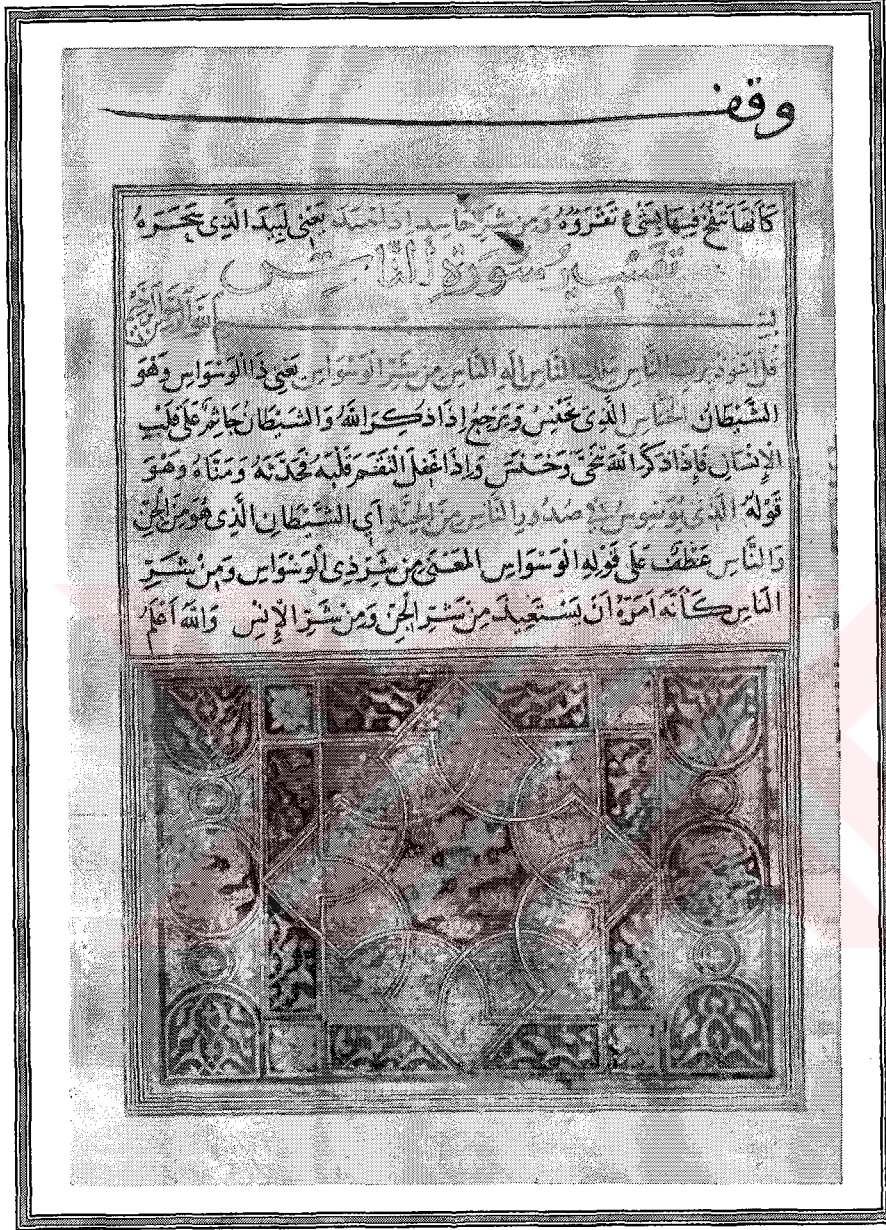 وقف
كَأَنَّهَا تَنْفُخُ فِيهَا بِشَيْءٍ تَقْرَؤُهُ وَمِن شَرِّ حَاسِدٍ إِذَا حَسَدَ يَعْنِي لَبِيدَ الَّذِي سَحَرَهُ
تفسير سورة الناس
بسم الله الرحمن الرحيم
قُلْ أَعُوذُ بِرَبِّ النَّاسِ مَلِكِ النَّاسِ إِلَهِ النَّاسِ مِن شَرِّ الْوَسْوَاسِ يَعْنِي ذَا الْوَسْوَاسِ وَهُوَ
الشَّيْطَانُ الْخَنَّاسِ الَّذِي يَخْنِسُ وَيَرْجِعُ إِذَا ذُكِرَ اللَّهُ وَالشَّيْطَانُ جَاثِمٌ عَلَى قَلْبِ
الْإِنْسَانِ فَإِذَا ذَكَرَ اللَّهَ تَنَحَّى وَخَنَسَ وَإِذَا غَفَلَ الْتَقَمَ قَلْبَهُ فَحَدَّثَهُ وَمَنَّاهُ وَهُوَ
قَوْلُهُ الَّذِي يُوَسْوِسُ فِي صُدُورِ النَّاسِ مِنَ الْجِنَّةِ أَيِ الشَّيْطَانِ الَّذِي هُوَ مِنَ الْجِنِّ
وَالنَّاسِ عَطْفٌ عَلَى قَوْلِهِ الْوَسْوَاسِ الْمَعْنَى مِنْ شَرِّ ذِي الْوَسْوَاسِ وَمِنْ شَرِّ
النَّاسِ كَأَنَّهُ أَمَرَهُ أَنْ يَسْتَعِيذَ مِنْ شَرِّ الْجِنِّ وَمِنْ شَرِّ الْإِنْسِ وَاللَّهُ أَعْلَمُ